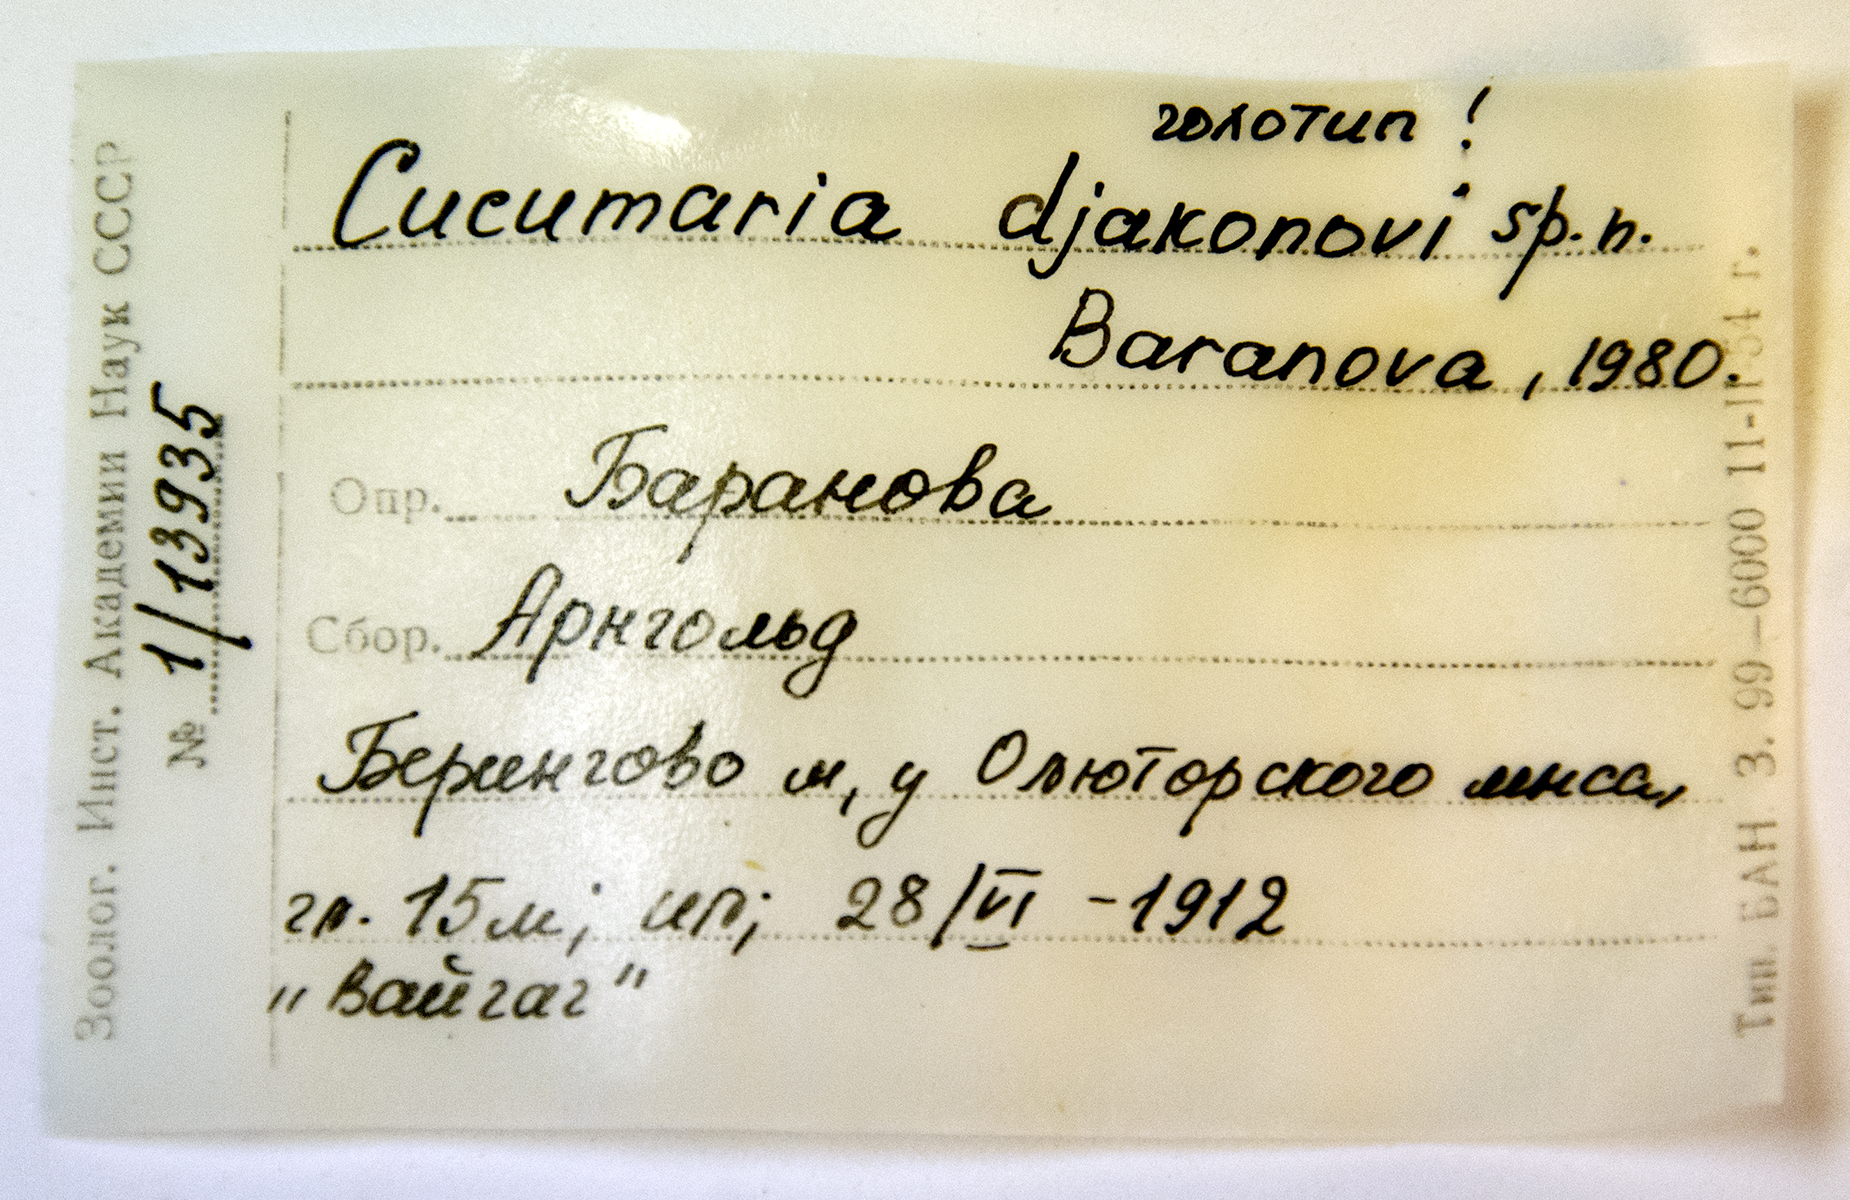 голотип!
Cucumaria djakonovi sp. n.
Baranova, 1980.
Опр. Баранова
Сбор. Арнгольд
Берингово м, у Олюторского мыса,
гл. 15м; ил; 28/VI - 1912
„Вайгаг"
Зоолог. Инст. Академии Наук СССР
№ 1/13935
Тип. БАН З. 99—6000 11-II-54 г.